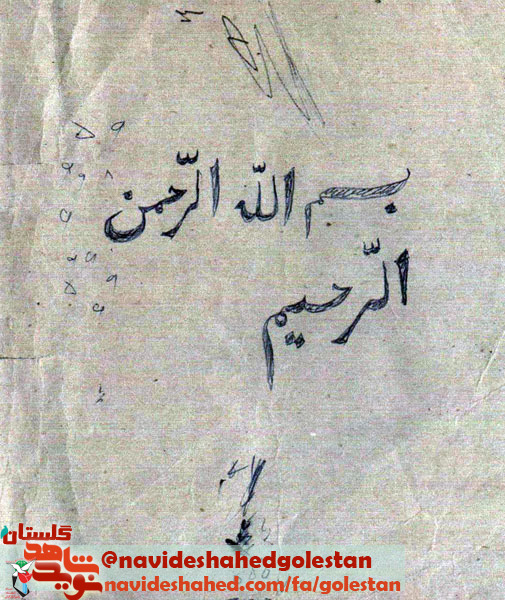 بسم الله الرّحمن
الرّحیم
گلستان
نوید شاهد
@navideshahedgolestan
navideshahed.com/fa/golestan